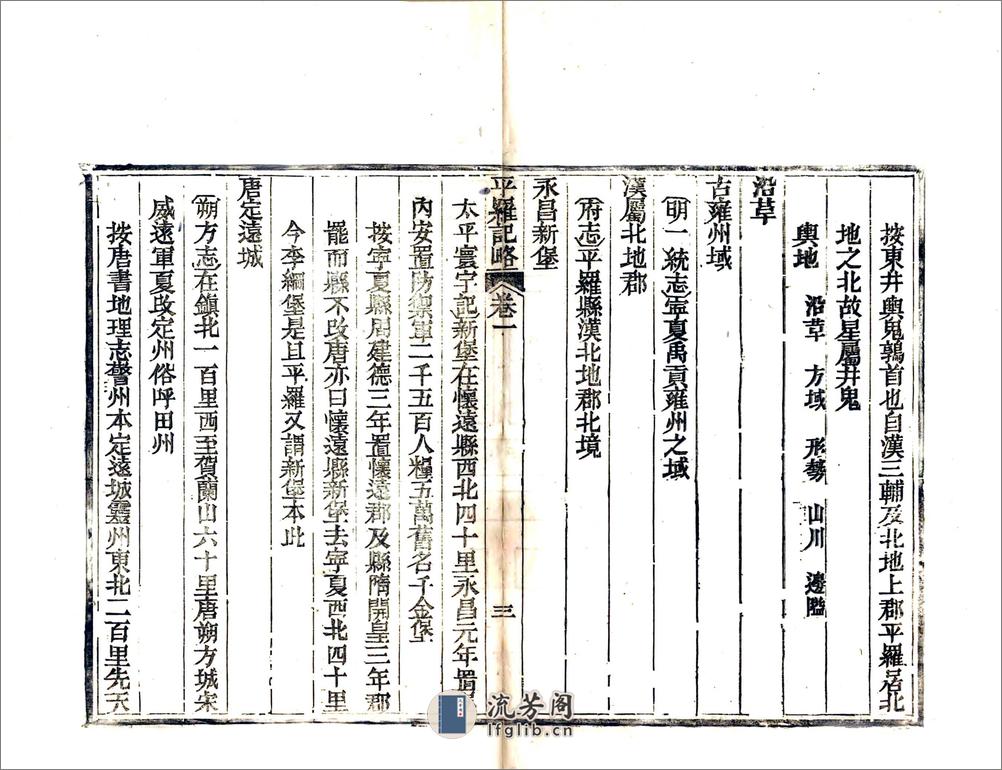 按東井輿鬼鶉首也自漢三輔及北地上郡平羅居北
地之北故星屬井鬼
輿地　沿革　方域　形勢　山川　邊隘
沿革
古雍州域
明一統志寧夏禹貢雍州之域
漢屬北地郡
府志平羅縣漢北地郡北境
永昌新堡
平羅記略　卷一　三
太平寰宇記新堡在懷遠縣西北四十里永昌元年置
內安置防禦軍二千五百人糧五萬舊名千金堡
按寧夏縣周建德三年置懷遠郡及縣隋開皇三年郡
罷而縣不改唐亦曰懷遠縣新堡去寧夏西北四十里
今李綱堡是且平羅又謂新堡本此
唐定遠城
朔方志在鎮北一百里西至賀蘭山六十里唐朔方城宋
威遠軍夏改定州俗呼田州
按唐書地理志警州本定遠城靈州東北二百里先天
流芳阁
lfglib.cn